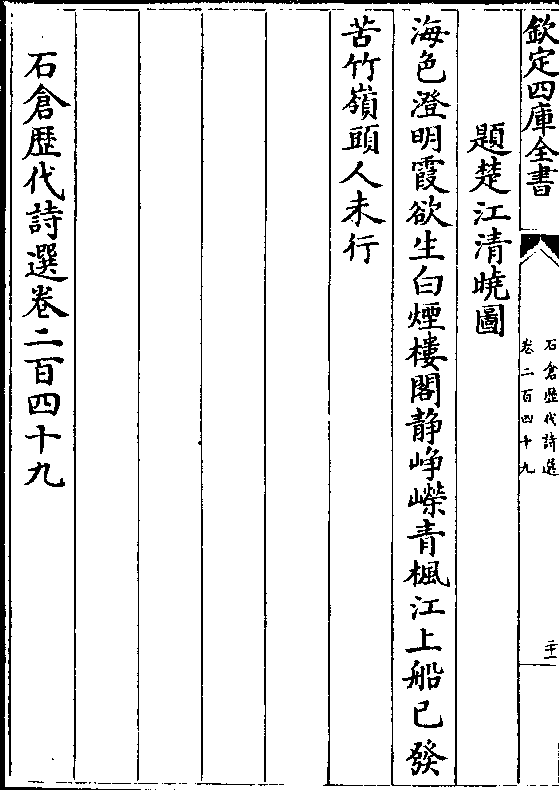 欽定四庫全書
石倉歴代詩選
卷二百四十九
二十一
題楚江清曉圖
海色澄明霞欲生白煙樓閣静崢嶸青楓江上船已發
苦竹嶺頭人未行
石倉歴代詩選卷二百四十九